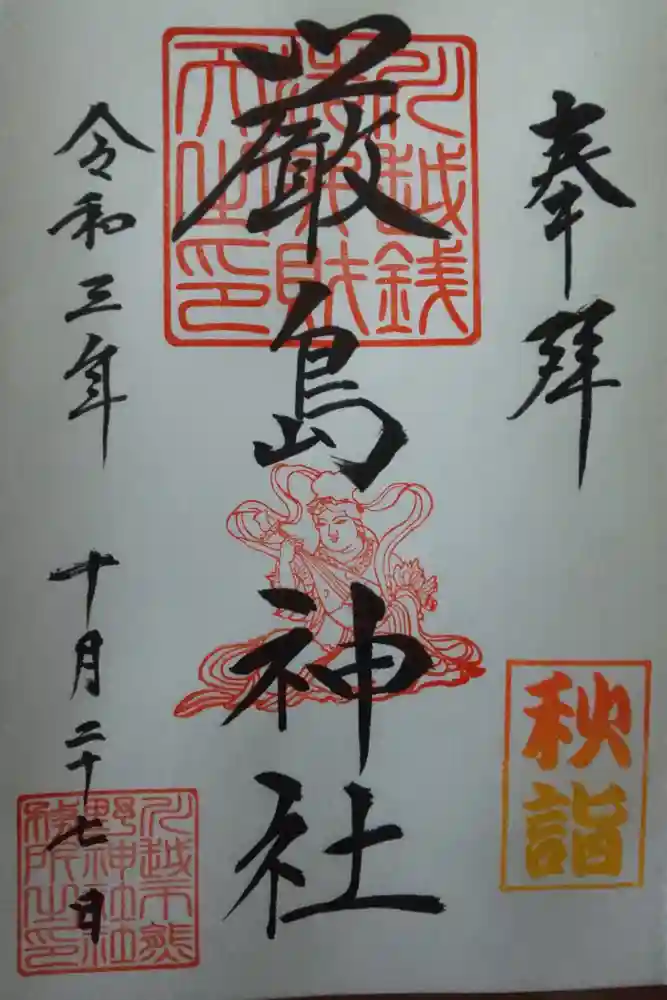 奉拝
秋詣
川越銭
洗弁財
天之印
厳島神社
令和三年 十月二十七日
川越市熊
野神社社
務所之印